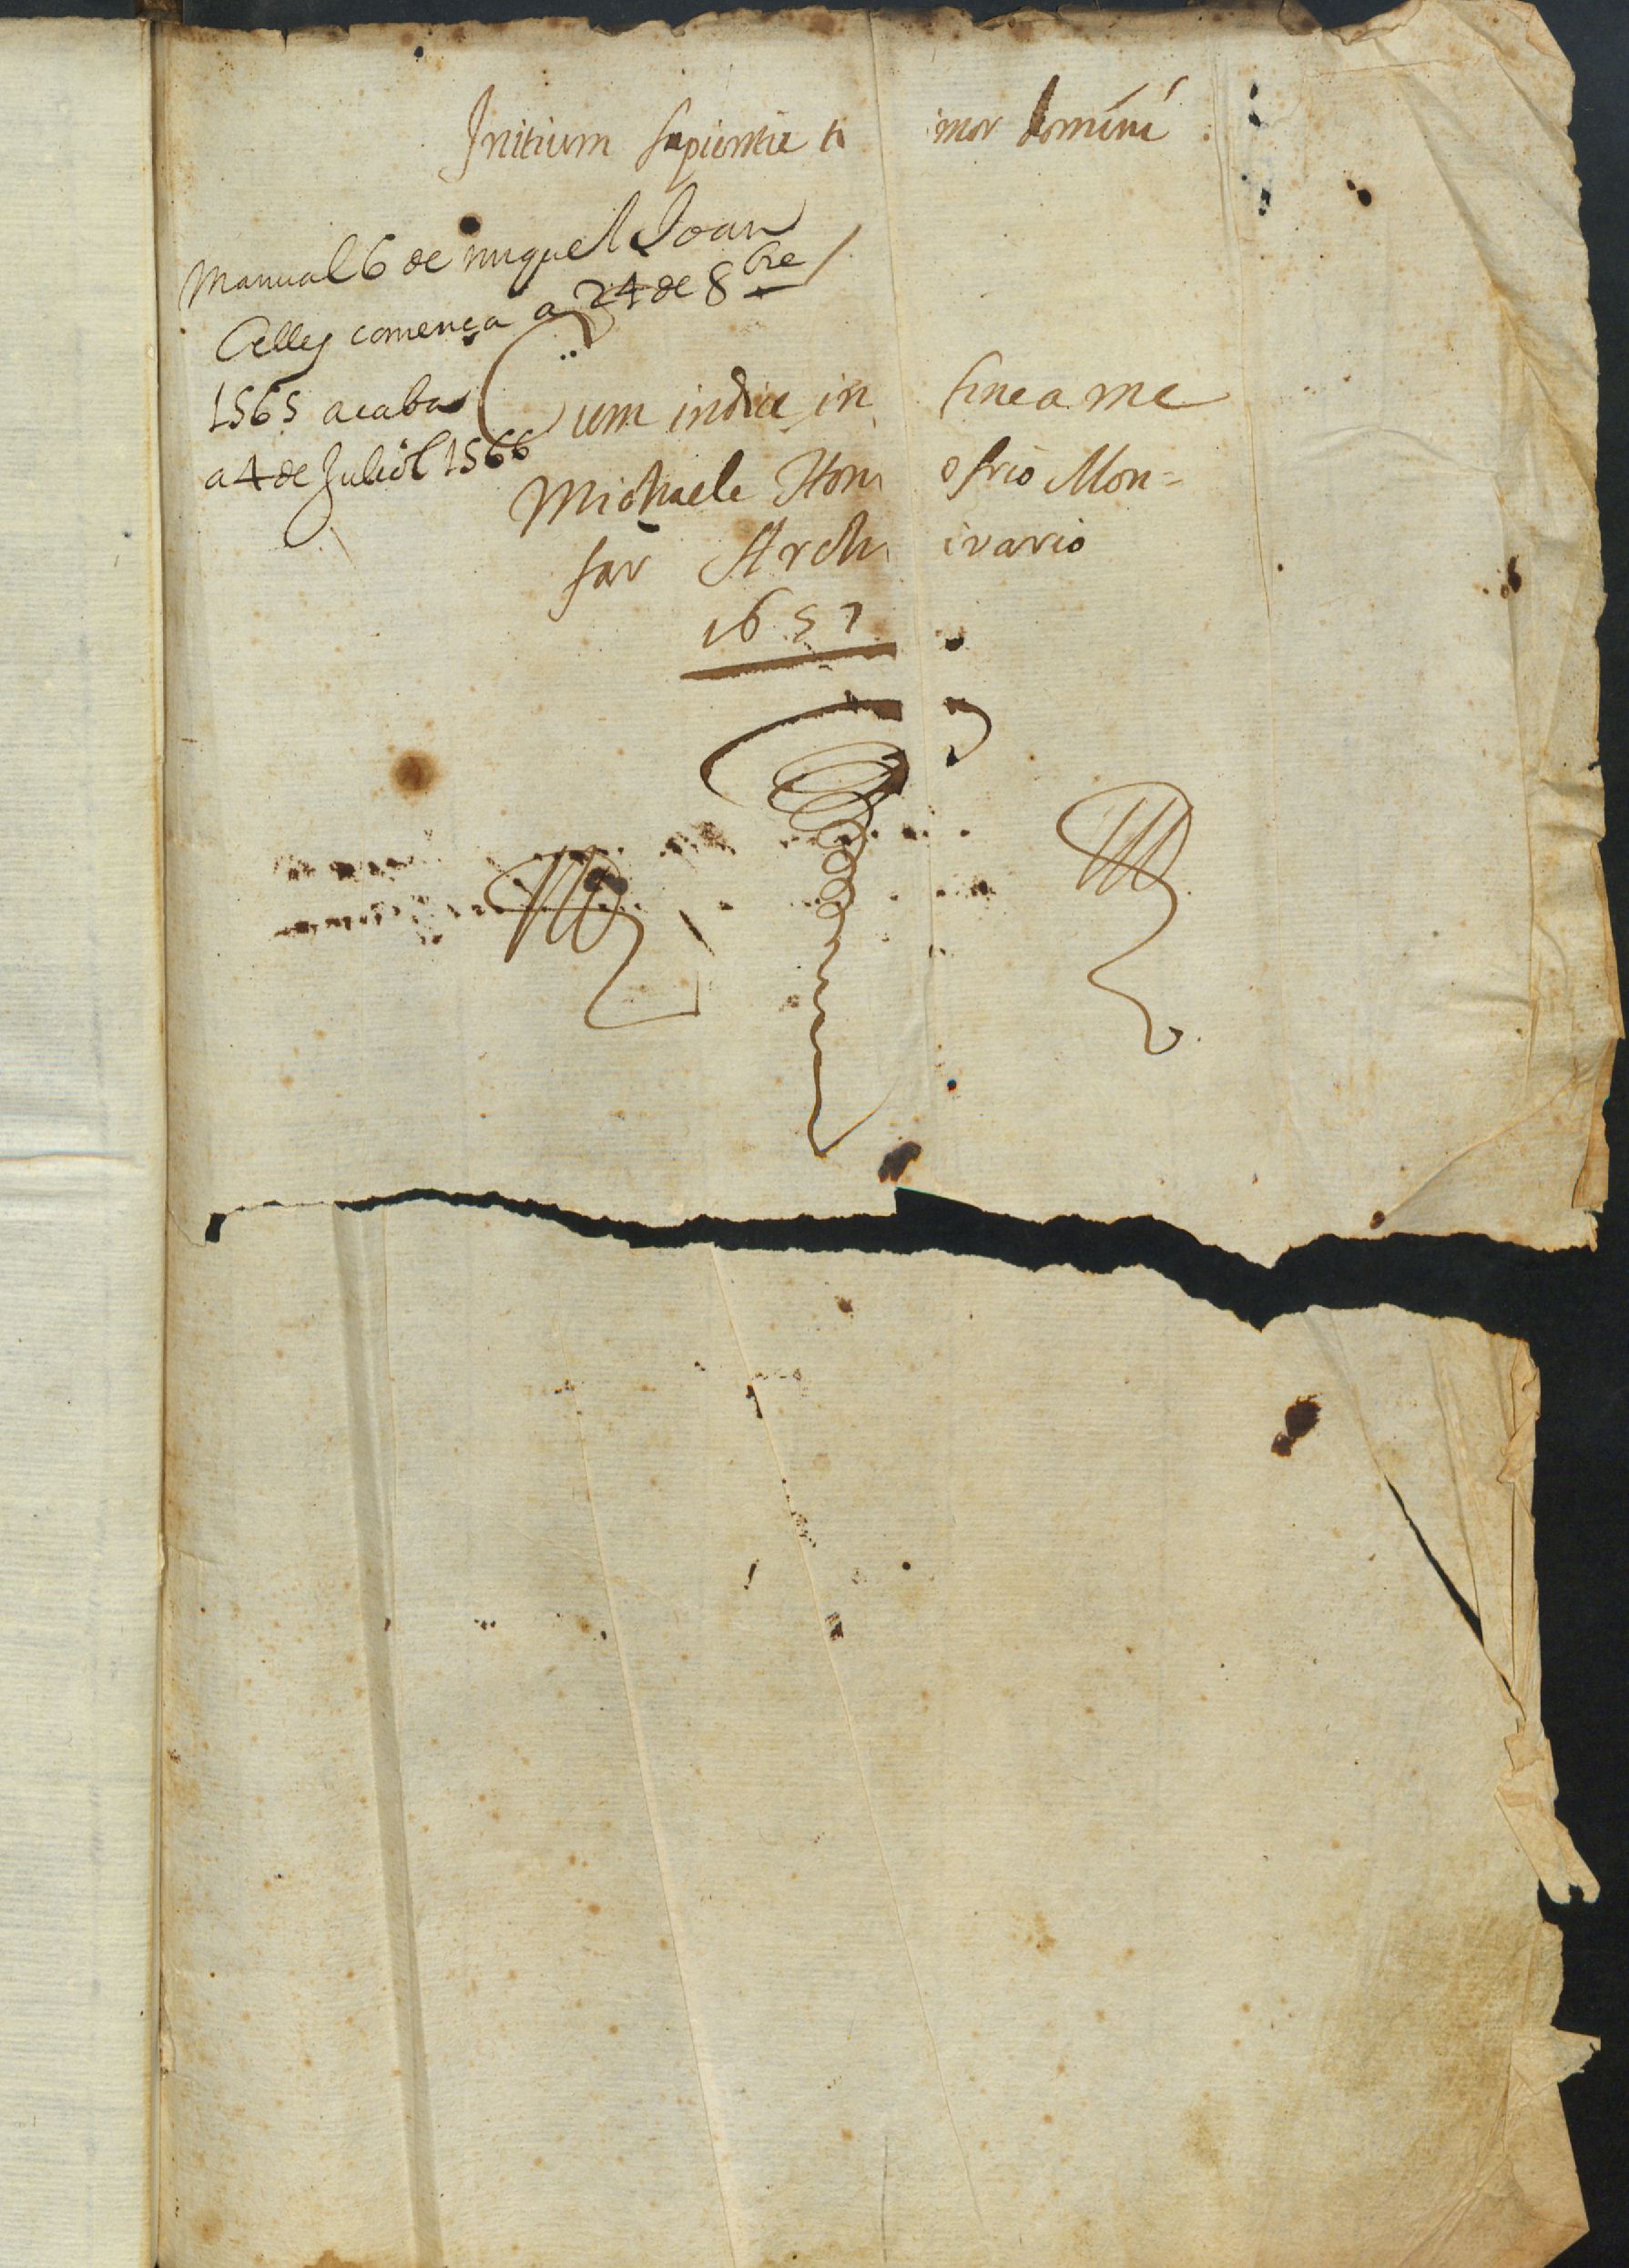 Initium sapientie timor domini
Manual 6 de miquel Joan
Celles comença a 24 de 8bre
1565 acaba
a 4 de Juliol 1566
Cum indice in fine a me
Michaele Honofrio Mon=
sar Archivario
1657